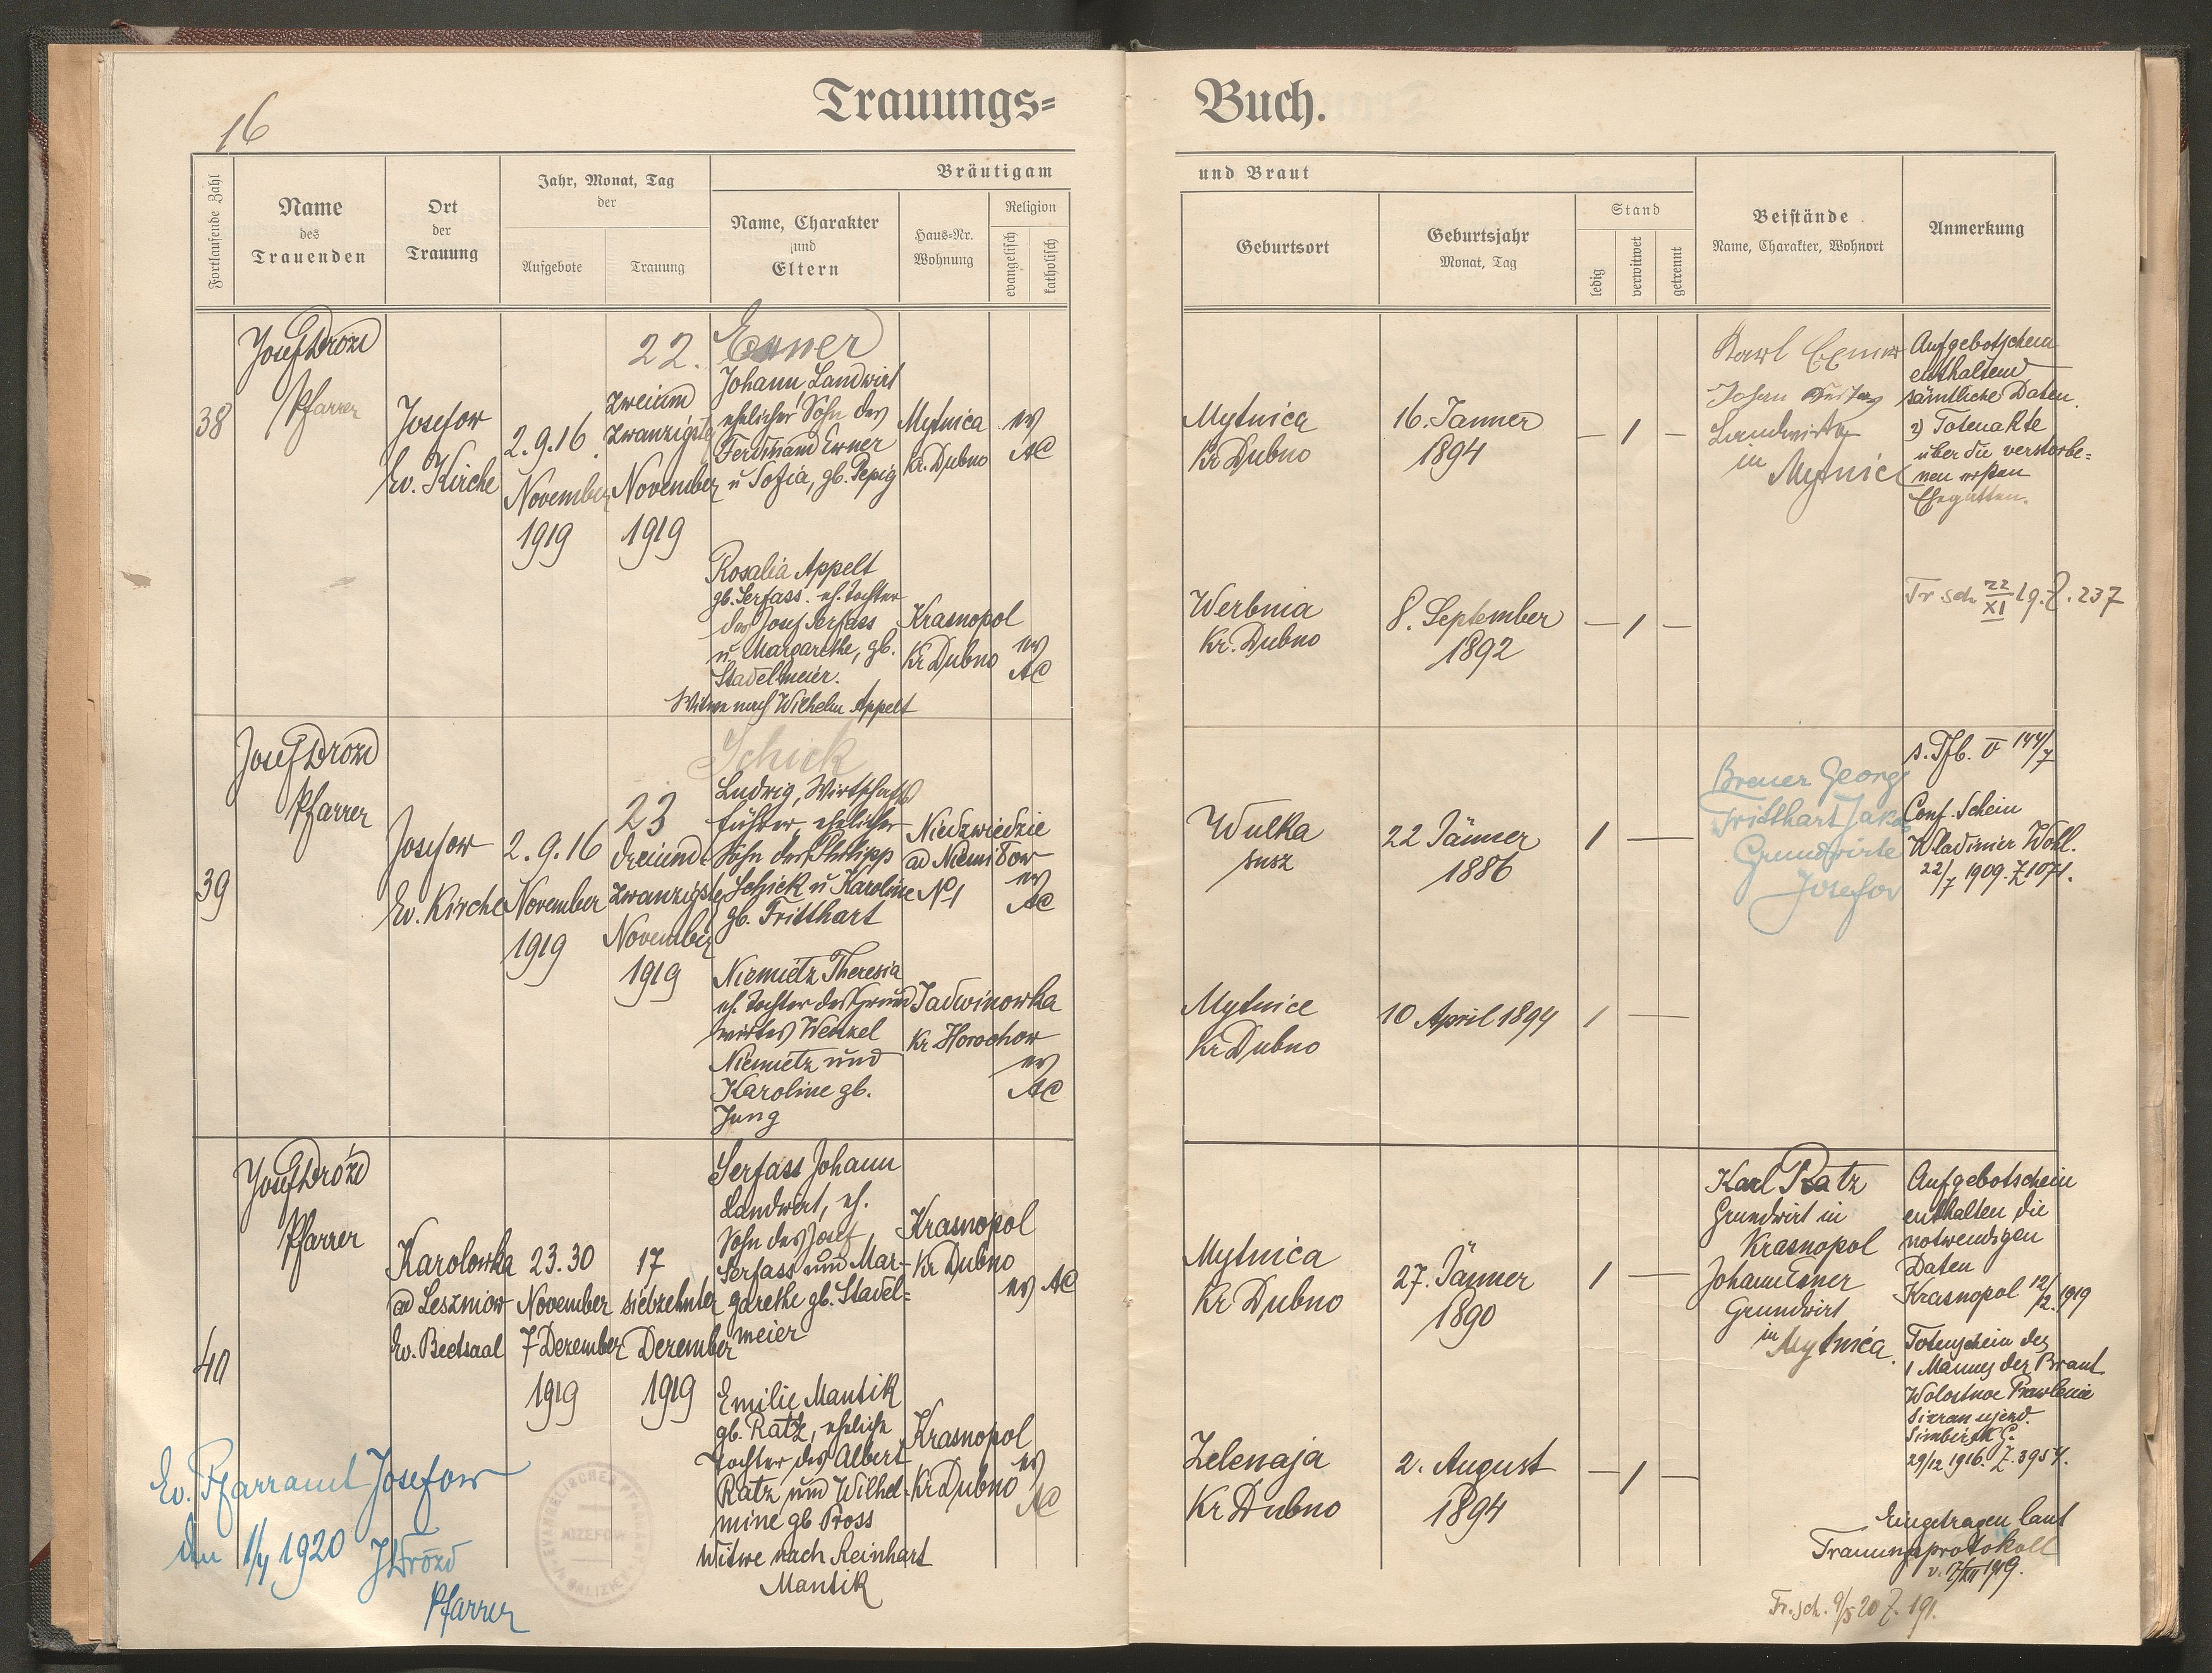 Trauungs=
Buch.
16
Fortlaufende Zahl
Name
des
Trauenden
Ort
der
Trauung
Jahr, Monat, Tag
der
Aufgebote
Trauung
Bräutigam
und Braut
Name, Charakter
und
Eltern
Haus-Nr.
Wohnung
Religion
evangelisch
katholisch
Geburtsort
Geburtsjahr
Monat, Tag
Stand
ledig
verwitwet
getrennt
Beistände
Name, Charakter, Wohnort
Anmerkung
38
Josef Drozd
Pfarrer
Josefow
Ev. Kirche
2.9.16
November
1919
22.
zwanzigste
November
1919
Exner
Johann Landwirt
ehelicher Sohn des
Ferdinand Exner
u Sofia, gb. Pepig
Mytnica
Kr. Dubno
ev
AC
Mytnica
Kr Dubno
16. Jänner
1894
— 1 —
Karl Exner
Johan
Landwirte
in
Mytnice
Aufgebotschein
enthaltend
sämtliche Daten.
2) Totenakte
über die verstorbe=
nen ersten
Ehegatten.
Rosalia Appelt
gb. Serfass. eh. Tochter
des Josef Serfass
u. Margarethe, gb.
Stadelmeier.
Witwe nach Wilhelm Appelt
Krasnopol
Kr Dubno
ev
AC
Werbnia
Kr. Dubno
8. September
1892
— 1 —
Tr. sch 22/XI 19. Z. 237
39
Josef Drozd
Pfarrer
Josefow
Ev. Kirche
2.9.16
November
1919
23
dreiund
zwanzigste
November
1919
Schick
Ludwig, Wirtschafts
führer, ehelicher
Sohn des Philipp
Schick u Karoline
gb. Tritthart
Niedzwiedzie
ad Niemitow
No 1
ev
AC
Wulka
susz
22 Jänner
1886
1 —
Breuer Georg
Tritthart Jakob
Grundwirte
Josefow
s. Tfb. V 144/7
Conf. Schein
Wladimier Wohl.
22/7 1909. Z 1071.
Niemietz Theresia
eh. Tochter des Grund
wirtes Wenzel
Niemietz und
Karoline gb.
Jung
Jadwinowka
Kr Horochow
ev
AC
Mytnice
Kr Dubno
10 April 1894
1 —
40
Josef Drozd
Pfarrer
Karolowka
ad Leszniow
Ev. Beetsaal
23.30
November
7 Dezember
1919
17
siebzehnter
Dezember
1919
Serfass Johann
Landwirt, eh.
Sohn des Josef
Serfass und Mar-
garethe gb. Stadel=
meier
Krasnopol
Kr Dubno
ev AC
Mytnica
Kr Dubno
27. Jänner
1890
1 —
Karl Ratz
Grundwirt in
Krasnopol
Johann Exner
Grundwirt
in
Mytnica.
Aufgebotschein
enthalten die
notwendigen
Daten
Krasnopol 12/12. 1919
Totenschein des
1 Mannes der Braut
Wolostnoe Prawlenie
Simbirsk G.
29/12 1916. Z. 3954.
Emilie Mantik
gb. Ratz, eheliche
Tochter des Albert
Ratz und Wilhel-
mine gb Pross
Witwe nach Reinhart
Mantik
Krasnopol
Kr Dubno
ev
AC
Zelenaja
Kr Dubno
2. August
1894
— 1 —
Eingetragen laut
Trauungsprotokoll
Tr. sch. 9/5 20 Z. 191.
Ev. Pfarramt Josefow
den 1/4 1920
JDrozd
Pfarrer